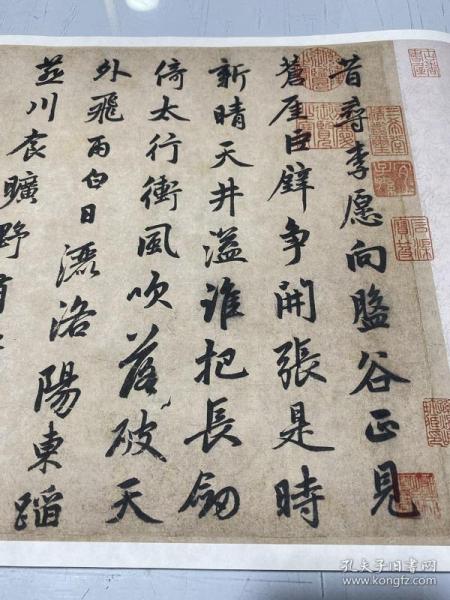 昔尋李愿向盤谷正見
蒼厓巨壁争開張是時
新晴天井溢誰把長劒
倚太行衝風吹落破天
外飛雨白日灑洛陽東蹈
燕川食曠野有
孔夫子旧书网
www.kongfz.com